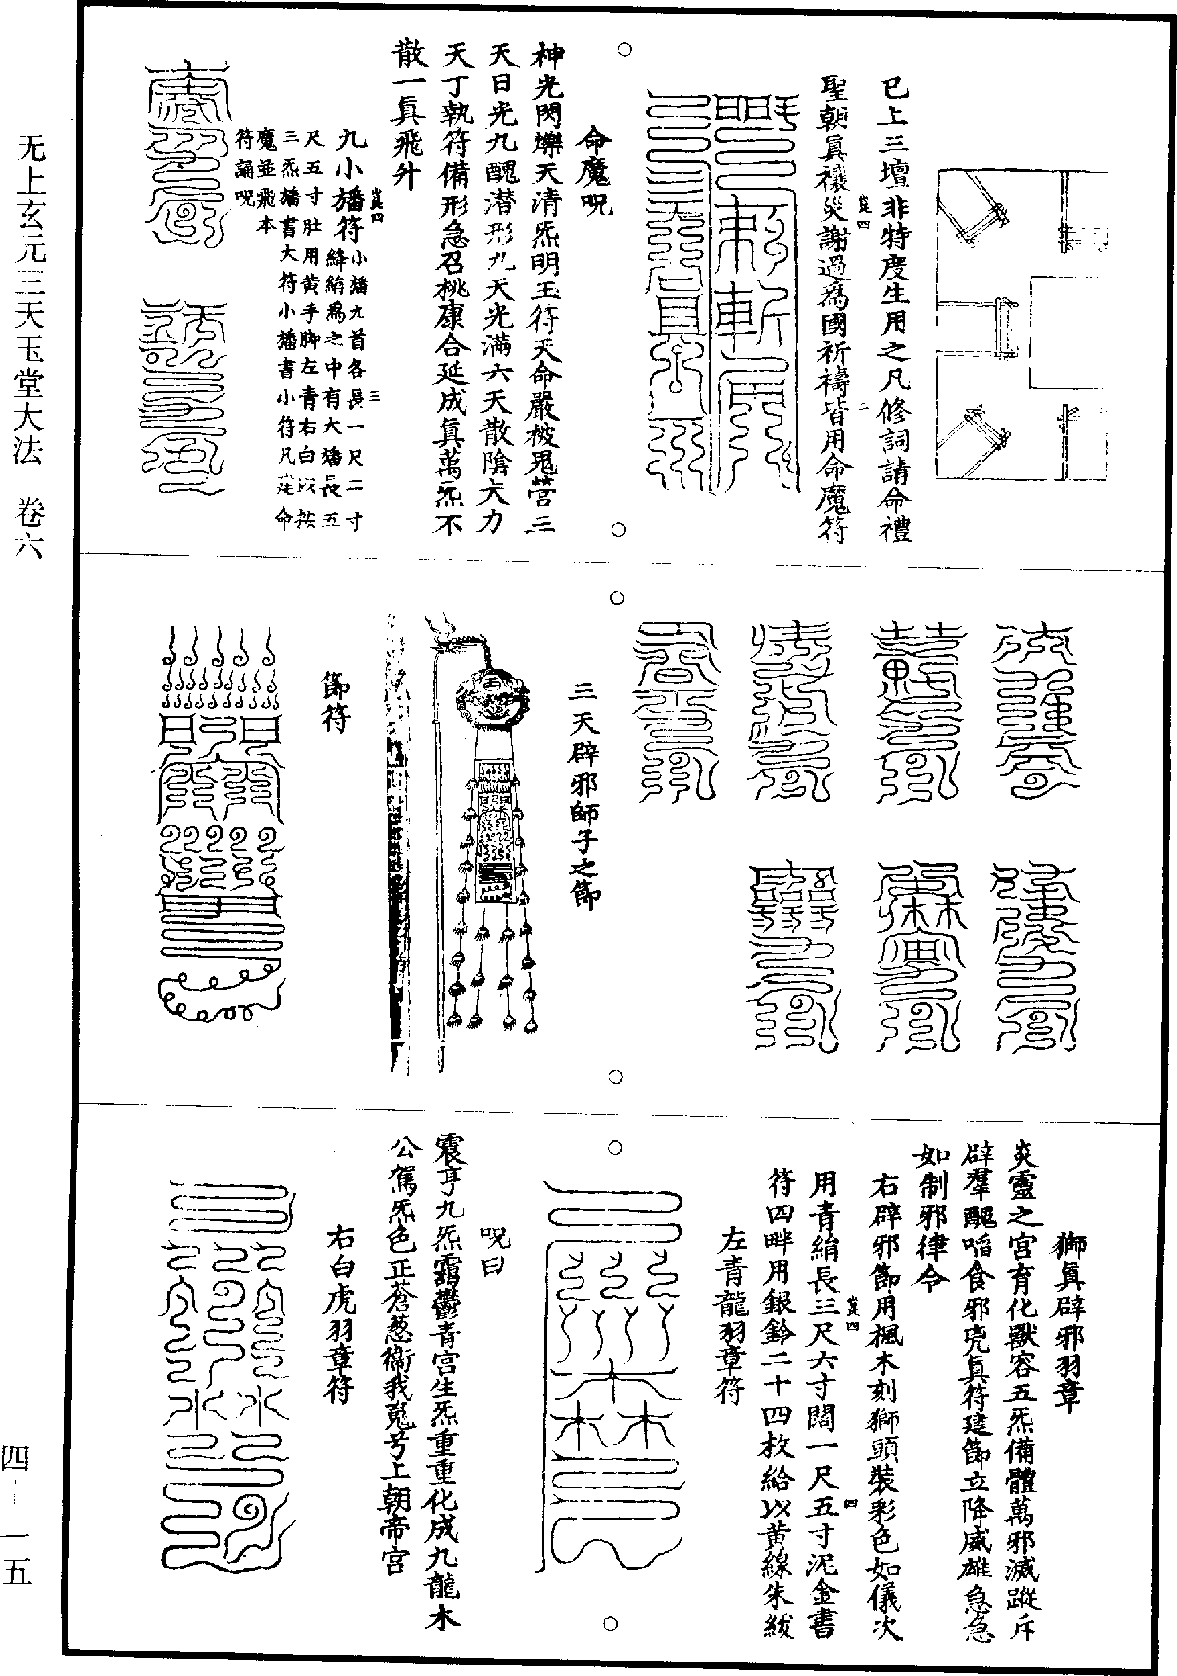 无上玄元三天玉堂大法 卷六
四—一五
已上三壇非特度生用之凡修詞請命禮
聖朝眞禳災謝過爲國祈禱皆用命魔符
命魔呪
神光閃爍天清炁明玉符天命嚴摧鬼營三
天日光九醜潛形九天光滿六天散陰大力
天丁執符備形急召桃康合延成眞萬炁不
散一眞飛升
九小旛符
小旛九首各長一尺二寸
絳絹爲之中有大旛長五
尺五寸肚用黃手脚左青右白以按
三炁旛書大符小旛書小符凡建命
魔並飛本
符誦呪
三天辟邪師子之節
節符
獅眞辟邪羽章
炎靈之宮有化獸容五炁備體萬邪滅蹤斥
辟羣醜啗食邪兇眞符建節立降威雄急急
如制邪律令
右辟邪節用楓木刻獅頭裝彩色如儀次
用青絹長三尺六寸闊一尺五寸泥金書
符四畔用銀鈴二十四枚給以黃線朱紱
左青龍羽章符
呪曰
震亨九炁靄鬱青宮生炁重重化成九龍木
公駕炁色正蒼葱衞我冤兮上朝帝宮
右白虎羽章符